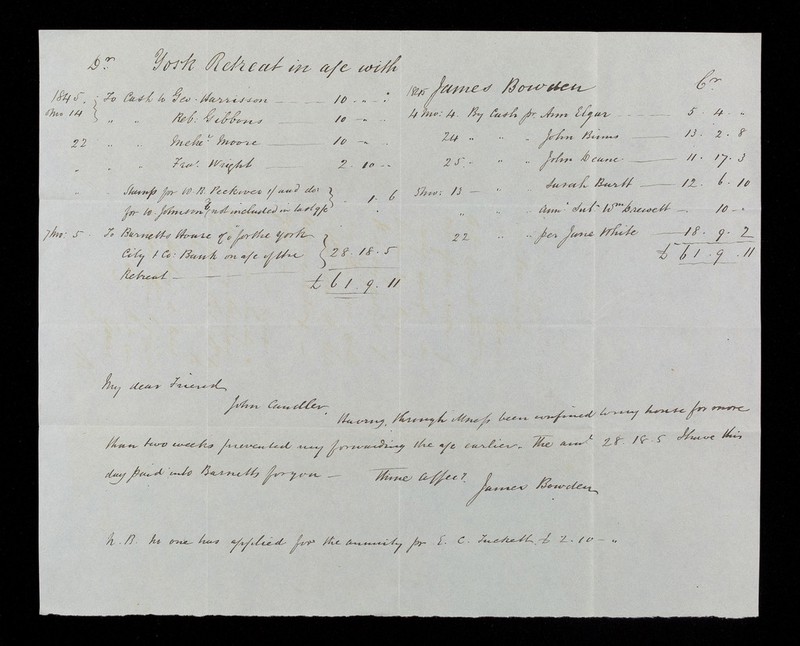 Dr. York Retreat in a/c with
1845. To Cash to Geo. Harrisson 10 " "
5mo 14 " " Rob: Gibbons 10 " "
22 " " Moore 10 " "
" " " Fras. Wright 2. 10 "
" " Stamps for W. R. Peckover 
for W. Johnson not included in last a/c 1. 6
7mo: 5 To Barnetts Hoare & Co for the York
City & Co: Bank on a/c of the
Retreat 28. 18. 5
£ 61. 9. 11
1845 James Bowden Cr.
4 mo: 4. By Cash pr. Ann Elgar 5. 4. "
24 " " John Binns 13. 2. 8
25. " " John Deane 11. 17. 3
5mo: 13 " Sarah Burtt 12. 6. 10
" " Annl. Subn Wm 10 "
22 " per Jane White 18. 9. 2
£ 61. 9. 11
My dear Friend
John Candler.
Having, through illness been confined to my house for more
than two weeks prevented my forwarding the a/c earlier. The amt. 28. 18. 5 I have this
day paid into Barnetts for you —
Thine affect.
James Bowden
N. B. No one has applied for the annuity for E. C. Tuckett, £ 2. 10 - "